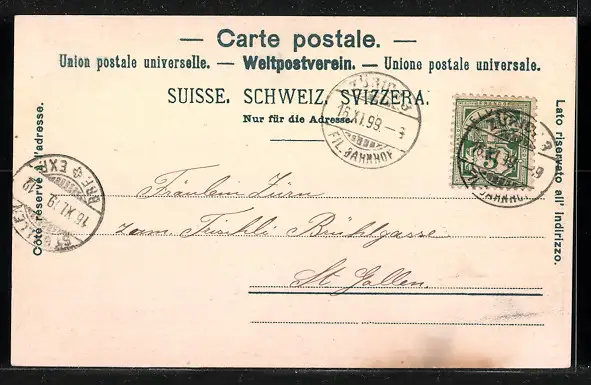 — Carte postale. —
Union postale universelle. — Weltpostverein. — Unione postale universale.
SUISSE. SCHWEIZ. SVIZZERA.
Nur für die Adresse.
Côté réservé à l'adresse.
Lato riservato all' indirizzo.
ZÜRICH 3
16.XI.99. – 9
FIL. BAHNHOF
ZÜRICH 3
FIL. BAHNHOF
5
ST. GALLEN
16.XI.99
BRF. EXP.
Fräulein Zürn
zum Tischli Brühlgasse
St Gallen